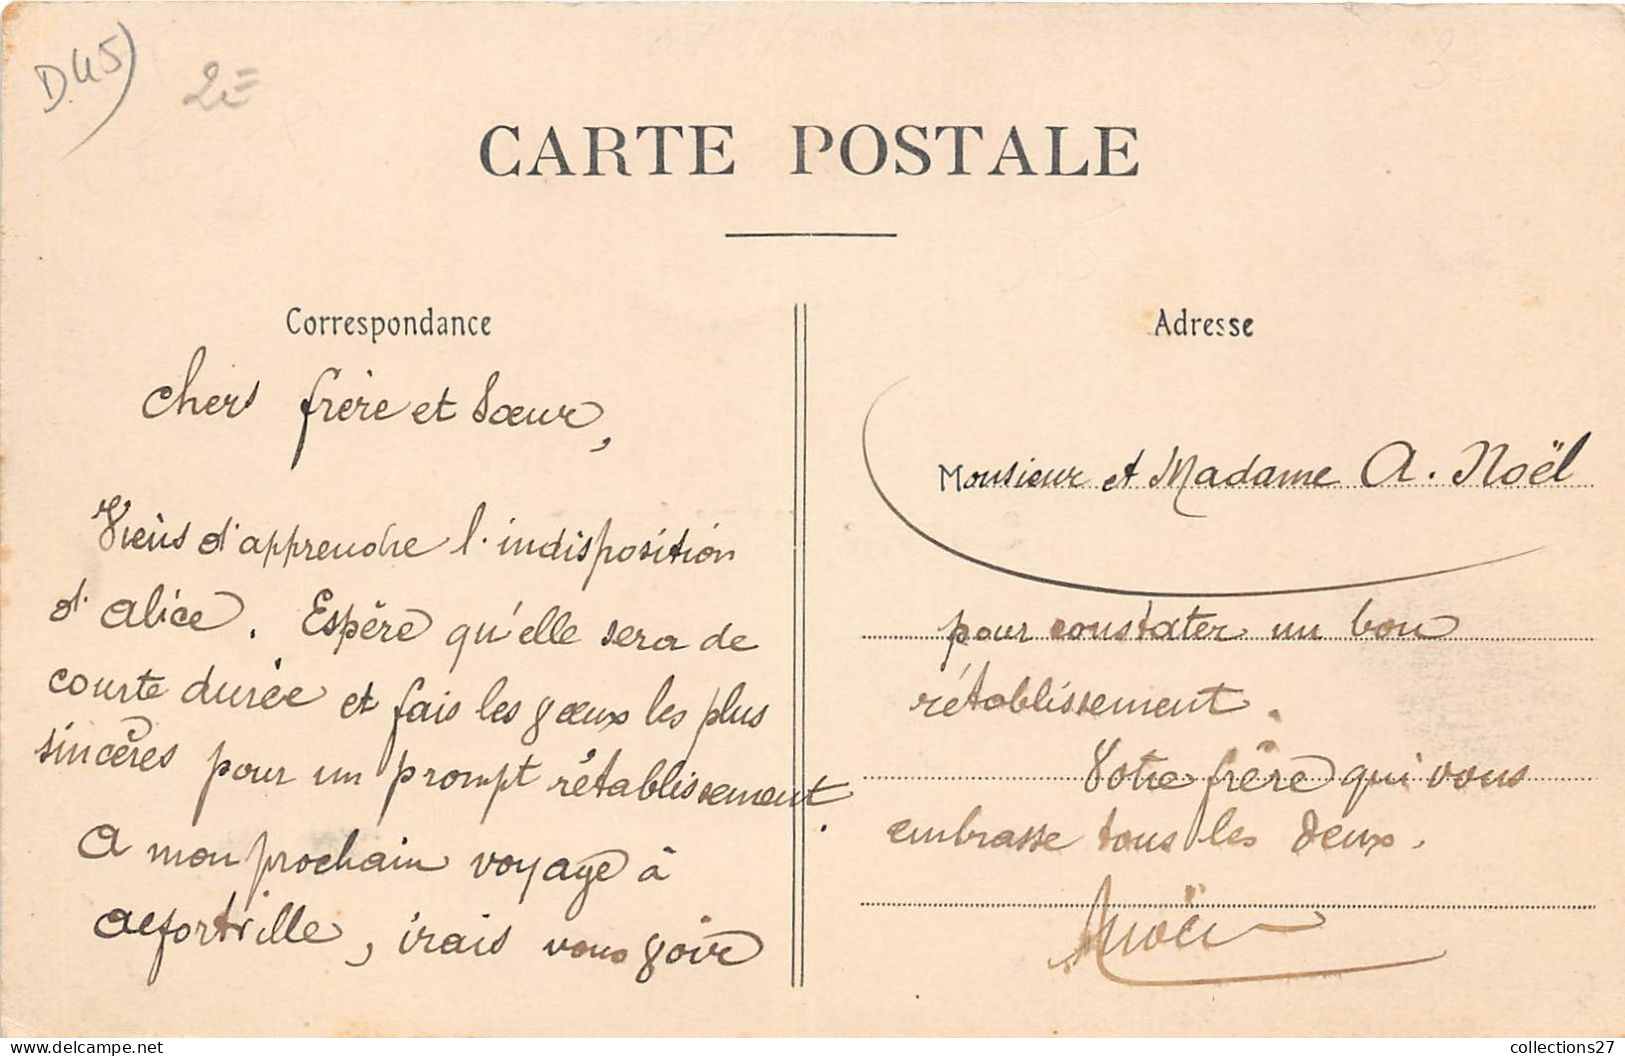 D.45)
2=
3
CARTE POSTALE
Correspondance
Chers frère et Sœur,
Viens d'apprendre l'indisposition
d'Alice. Espère qu'elle sera de
courte durée et fais les vœux les plus
sincères pour un prompt rétablissement.
A mon prochain voyage à
Alfortville, irais vous voir
Adresse
Monsieur et Madame A. Noël
pour constater un bon
rétablissement.
Votre frère qui vous
embrasse tous les deux.
Noël
collections27